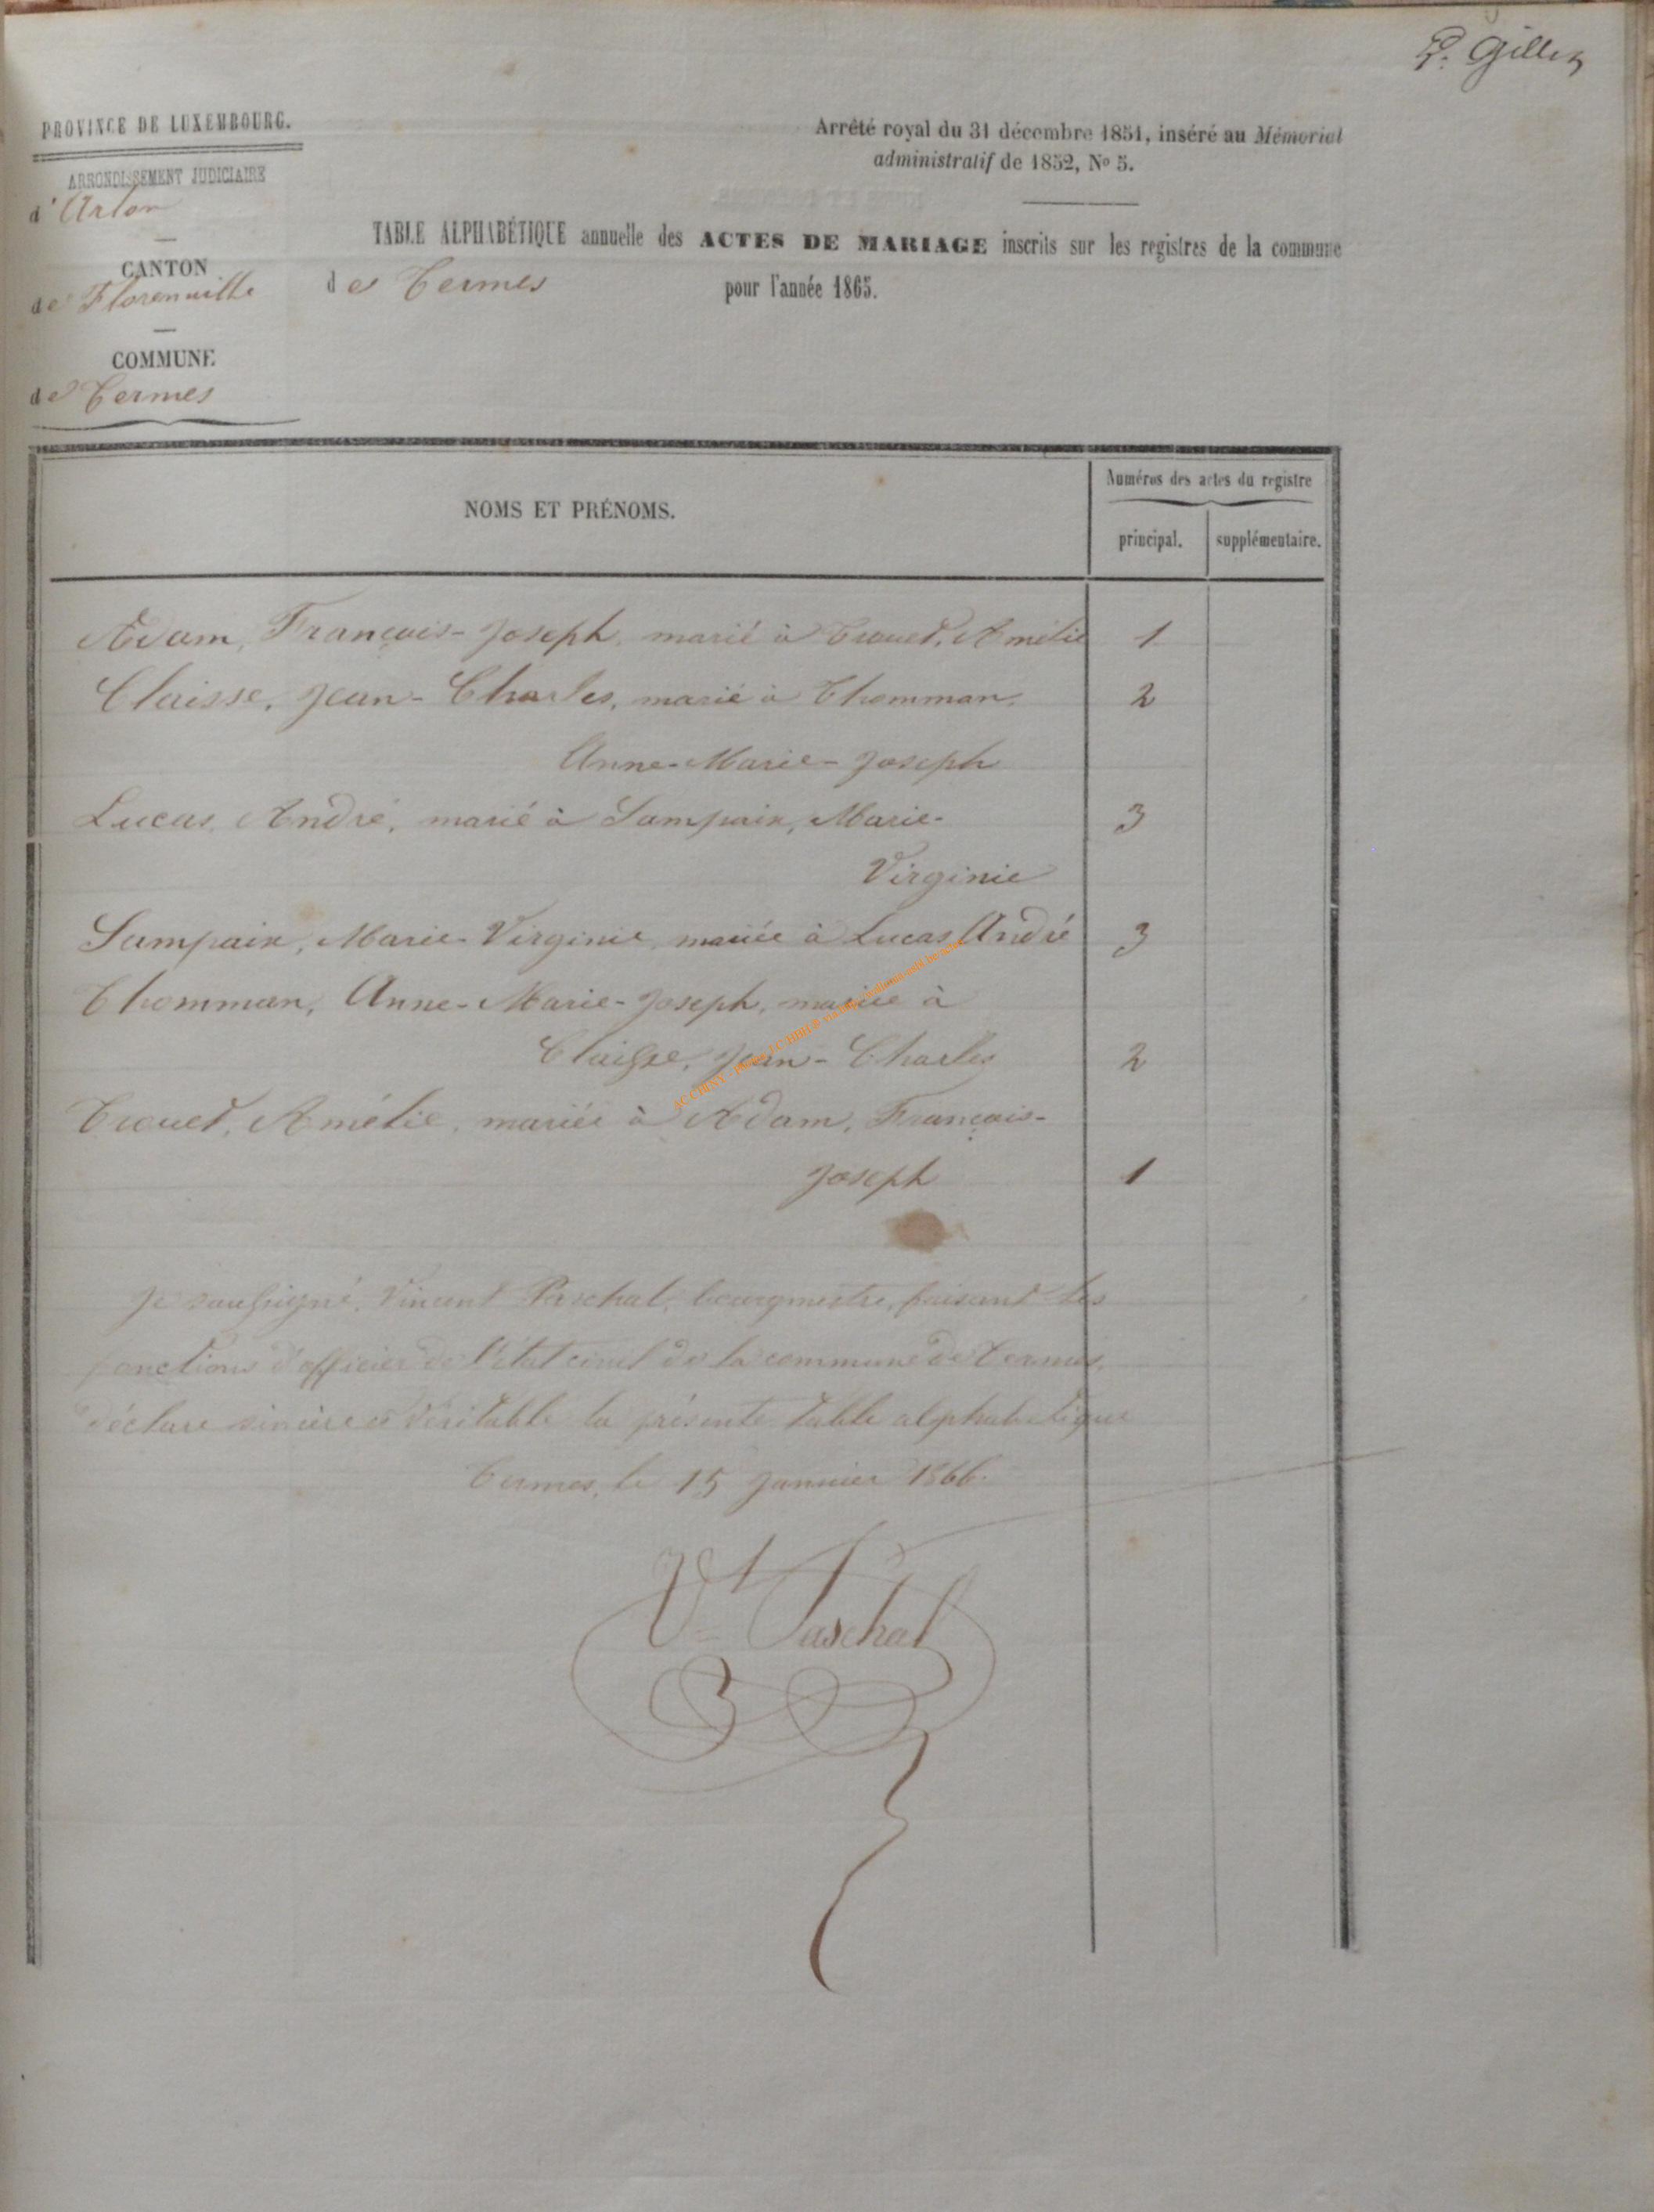 P. Gillet
PROVINCE DE LUXEMBOURG.
ARRONDISSEMENT JUDICIAIRE
d'Arlon
CANTON
de Florenville
COMMUNE
de Termes
Arrêté royal du 31 décembre 1851, inséré au Mémorial
administratif de 1852, No 5.
TABLE ALPHABÉTIQUE annuelle des ACTES DE MARIAGE inscrits sur les registres de la commune
de Termes pour l'année 1865.
NOMS ET PRÉNOMS.
Numéros des actes du registre
principal. supplémentaire.
Adam, François-Joseph, marié à Trouet, Amélie 1
Claisse, Jean-Charles, marié à Thomman, 2
Anne-Marie-Joseph
Lucas, André, marié à Sampaix, Marie- 3
Virginie
Sampaix, Marie-Virginie, mariée à Lucas André 3
Thomman, Anne-Marie-Joseph, mariée à
Claisse, Jean-Charles 2
Trouet, Amélie, mariée à Adam, François-
Joseph 1
Je soussigné, Vincent Paschal, bourgmestre, faisant les
fonctions d'officier de l'état civil de la commune de Termes,
déclare sincère et véritable la présente table alphabétique
Termes, le 15 Janvier 1866.
Vt Paschal